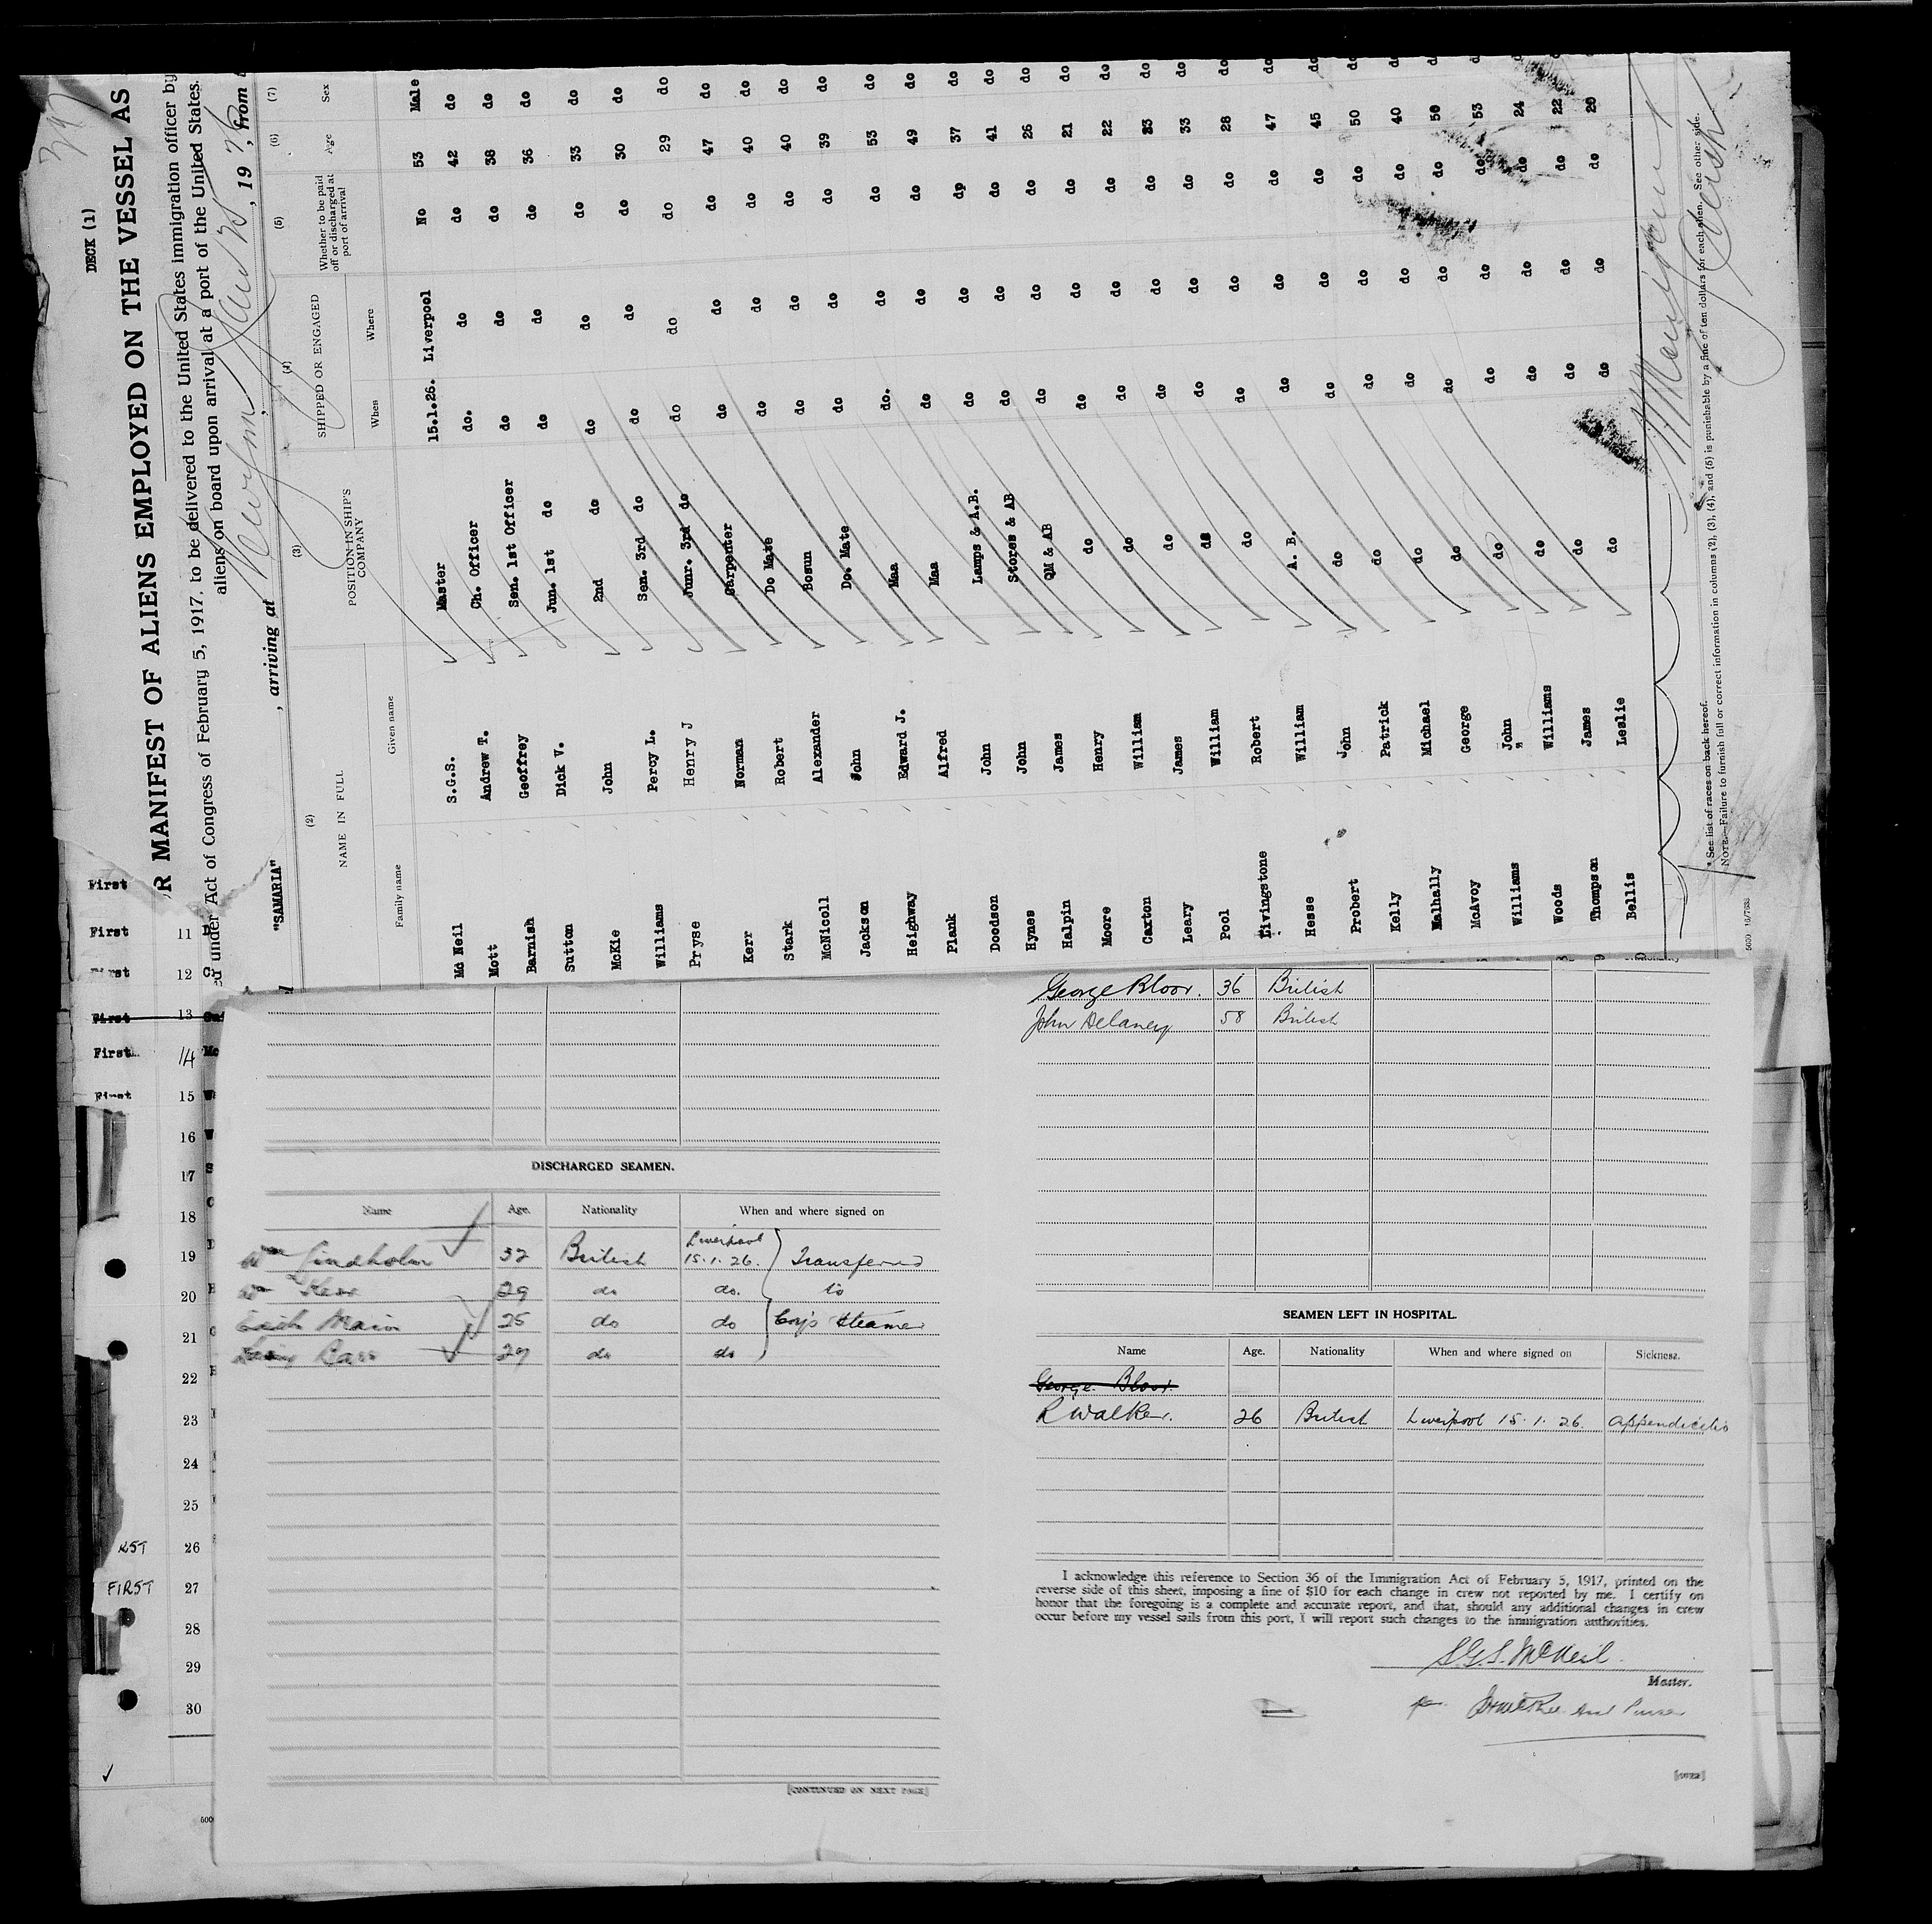 DECK (1)
MANIFEST OF ALIENS EMPLOYED ON THE VESSEL AS
under Act of Congress of February 5, 1917. to be delivered to the United States immigration officer by
aliens on board upon arrival at a port of the United States.
"SAMARIA" , arriving at , 19 26, from
(2) (3) (4) (5) (6) (7)
NAME IN FULL POSITION IN SHIP'S COMPANY SHIPPED OR ENGAGED Whether to be paid off or discharged at port of arrival Age Sex
Family name Given name When Where
Mc Neil S.G.S. Master 15.1.26. Liverpool No 53 Male
Mott Andrew T. Ch. Officer do. do do 42 do
Barnish Geoffrey Sen. 1st Officer do do do 38 do
Sutton Dick V. Jun. 1st do do do do 36 do
McKie John 2nd do do do do 33 do
Williams Percy L. Sen. 3rd do do do do 30 do
Pryse Henry J Junr. 3rd do do do do 29 do
Kerr Norman Carpenter do do do 47 do
Stark Robert Do Mate do do do 40 do
McNicoll Alexander Bosun do do do 40 do
Jackson John Do. Mate do do do 39 do
Heighway Edward J. Maa do. do do 53 do
Plank Alfred Maa do do do 49 do
Doodson John Lamps & A.B. do do do 37 do
Hynes John Stores & AB do do do 41 do
Halpin James QM & AB do do do 26 do
Moore Henry do do do do 21 do
Caxton William do do do do 22 do
Leary James do do do do 23 do
Pool William do do do do 33 do
Livingstone Robert do do do do 28 do
Hesse William A. B. do do do 47 do
Probert John do do do do 45 do
Kelly Patrick do do do do 50 do
Malhally Michael do do do do 40 do
McAvoy George do do do do 50 do
Williams John do do do do 53 do
Woods Williams do do do do 24 do
Thompson James do do do do 22 do
Bellis Leslie do do do do 20 do
* See list of races on back hereof.
NOTE.—Failure to furnish full or correct information in columns (2), (3), (4), and (5) is punishable by a fine of ten dollars for each alien. See other side.
First
First 11
First 12
First 13
First 14
First 15
16
17
18
19
20
21
22
23
24
25
26
FIRST 27
28
29
30
George Bloor. 36 British
John Delaney 58 British
DISCHARGED SEAMEN.
Name Age. Nationality When and where signed on
Wm Lindholm 32 British Liverpool 15.1.26. Transferred
Wm Kerr 29 do do. to
Main 25 do do Coy's Steamer
29 do do
[CONTINUED ON NEXT PAGE]
SEAMEN LEFT IN HOSPITAL.
Name Age. Nationality When and where signed on Sickness.
George Bloor.
R Walker. 26 British Liverpool 15.1.26. Appendicitis
I acknowledge this reference to Section 36 of the Immigration Act of February 5, 1917, printed on the
reverse side of this sheet, imposing a fine of $10 for each change in crew not reported by me. I certify on
honor that the foregoing is a complete and accurate report, and that, should any additional changes in crew
occur before my vessel sails from this port, I will report such changes to the immigration authorities.
S.G.S. McNeil.
Master.
per Asst Purser
[OVER]